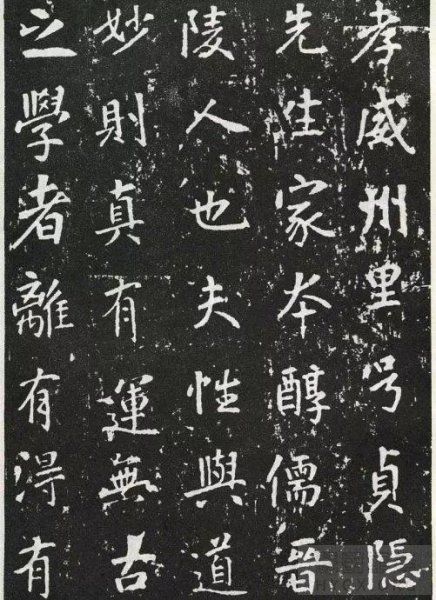 孝威州里号貞隠
先生家本醇儒晉
陵人也夫性與道
妙則真有運無古
之學者離有淂有